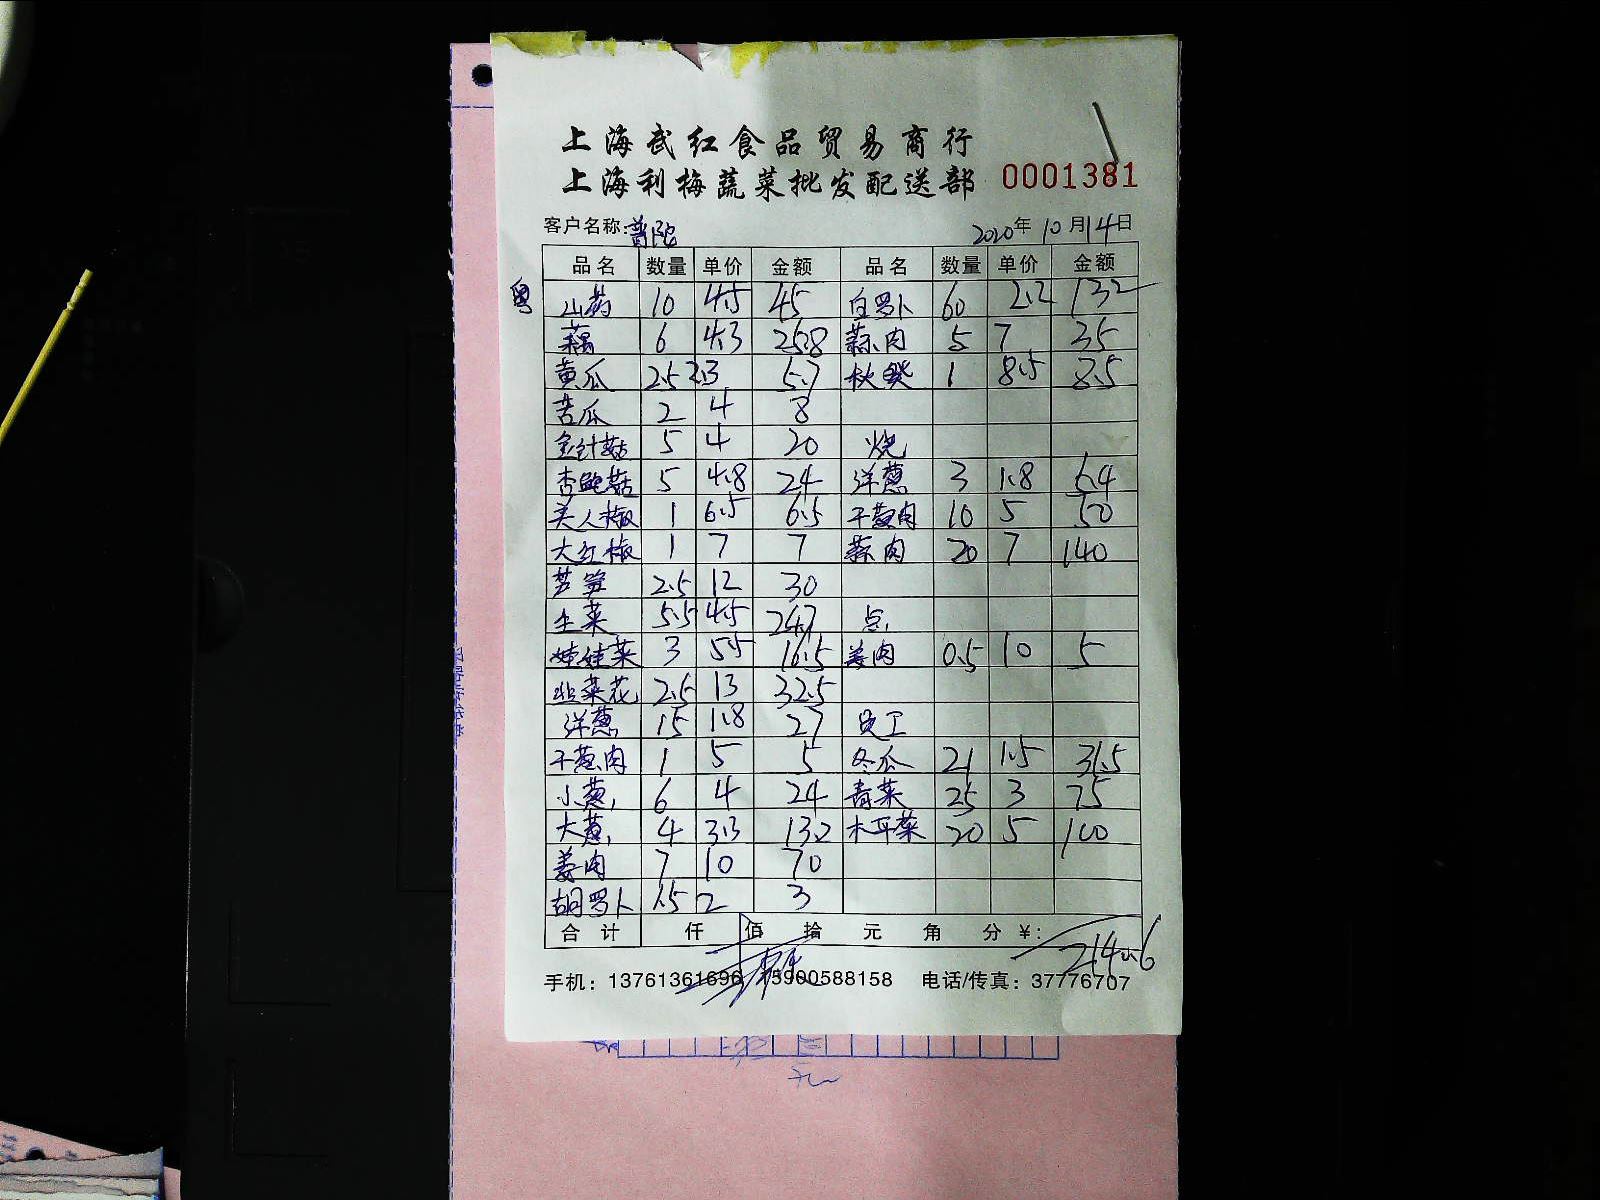 上海武红食品贸易商行
上海利梅蔬菜批发配送部 0001381
客户名称:普陀 2020年10月14日
品名 数量 单价 金额 品名 数量 单价 金额
粤 山药 10 4.5 45 白罗卜 60 2.2 132
藕 6 4.3 25.8 蒜肉 5 7 35
黄瓜 2.5 2.3 5.7 秋葵 1 8.5 8.5
苦瓜 2 4 8
金针菇 5 4 20 烧
杏鲍菇 5 4.8 24 洋葱 3 1.8 5.4
美人椒 1 6.5 6.5 干葱肉 10 5 50
大红椒 1 7 7 蒜肉 20 7 140
芦笋 2.5 12 30
生菜 5.5 4.5 24.7 点
娃娃菜 3 5.5 16.5 姜肉 0.5 10 5
韭菜花 2.5 13 32.5
洋葱 15 1.8 27 员工
干葱肉 1 5 5 冬瓜 21 1.5 31.5
小葱 6 4 24 青菜 25 3 75
大葱 4 3.3 13.2 木耳菜 20 5 100
姜肉 7 10 70
胡罗卜 1.5 2 3
合计 仟 佰 拾 元 角 分 ¥:
手机：13761361696 15900588158 电话/传真：37776707